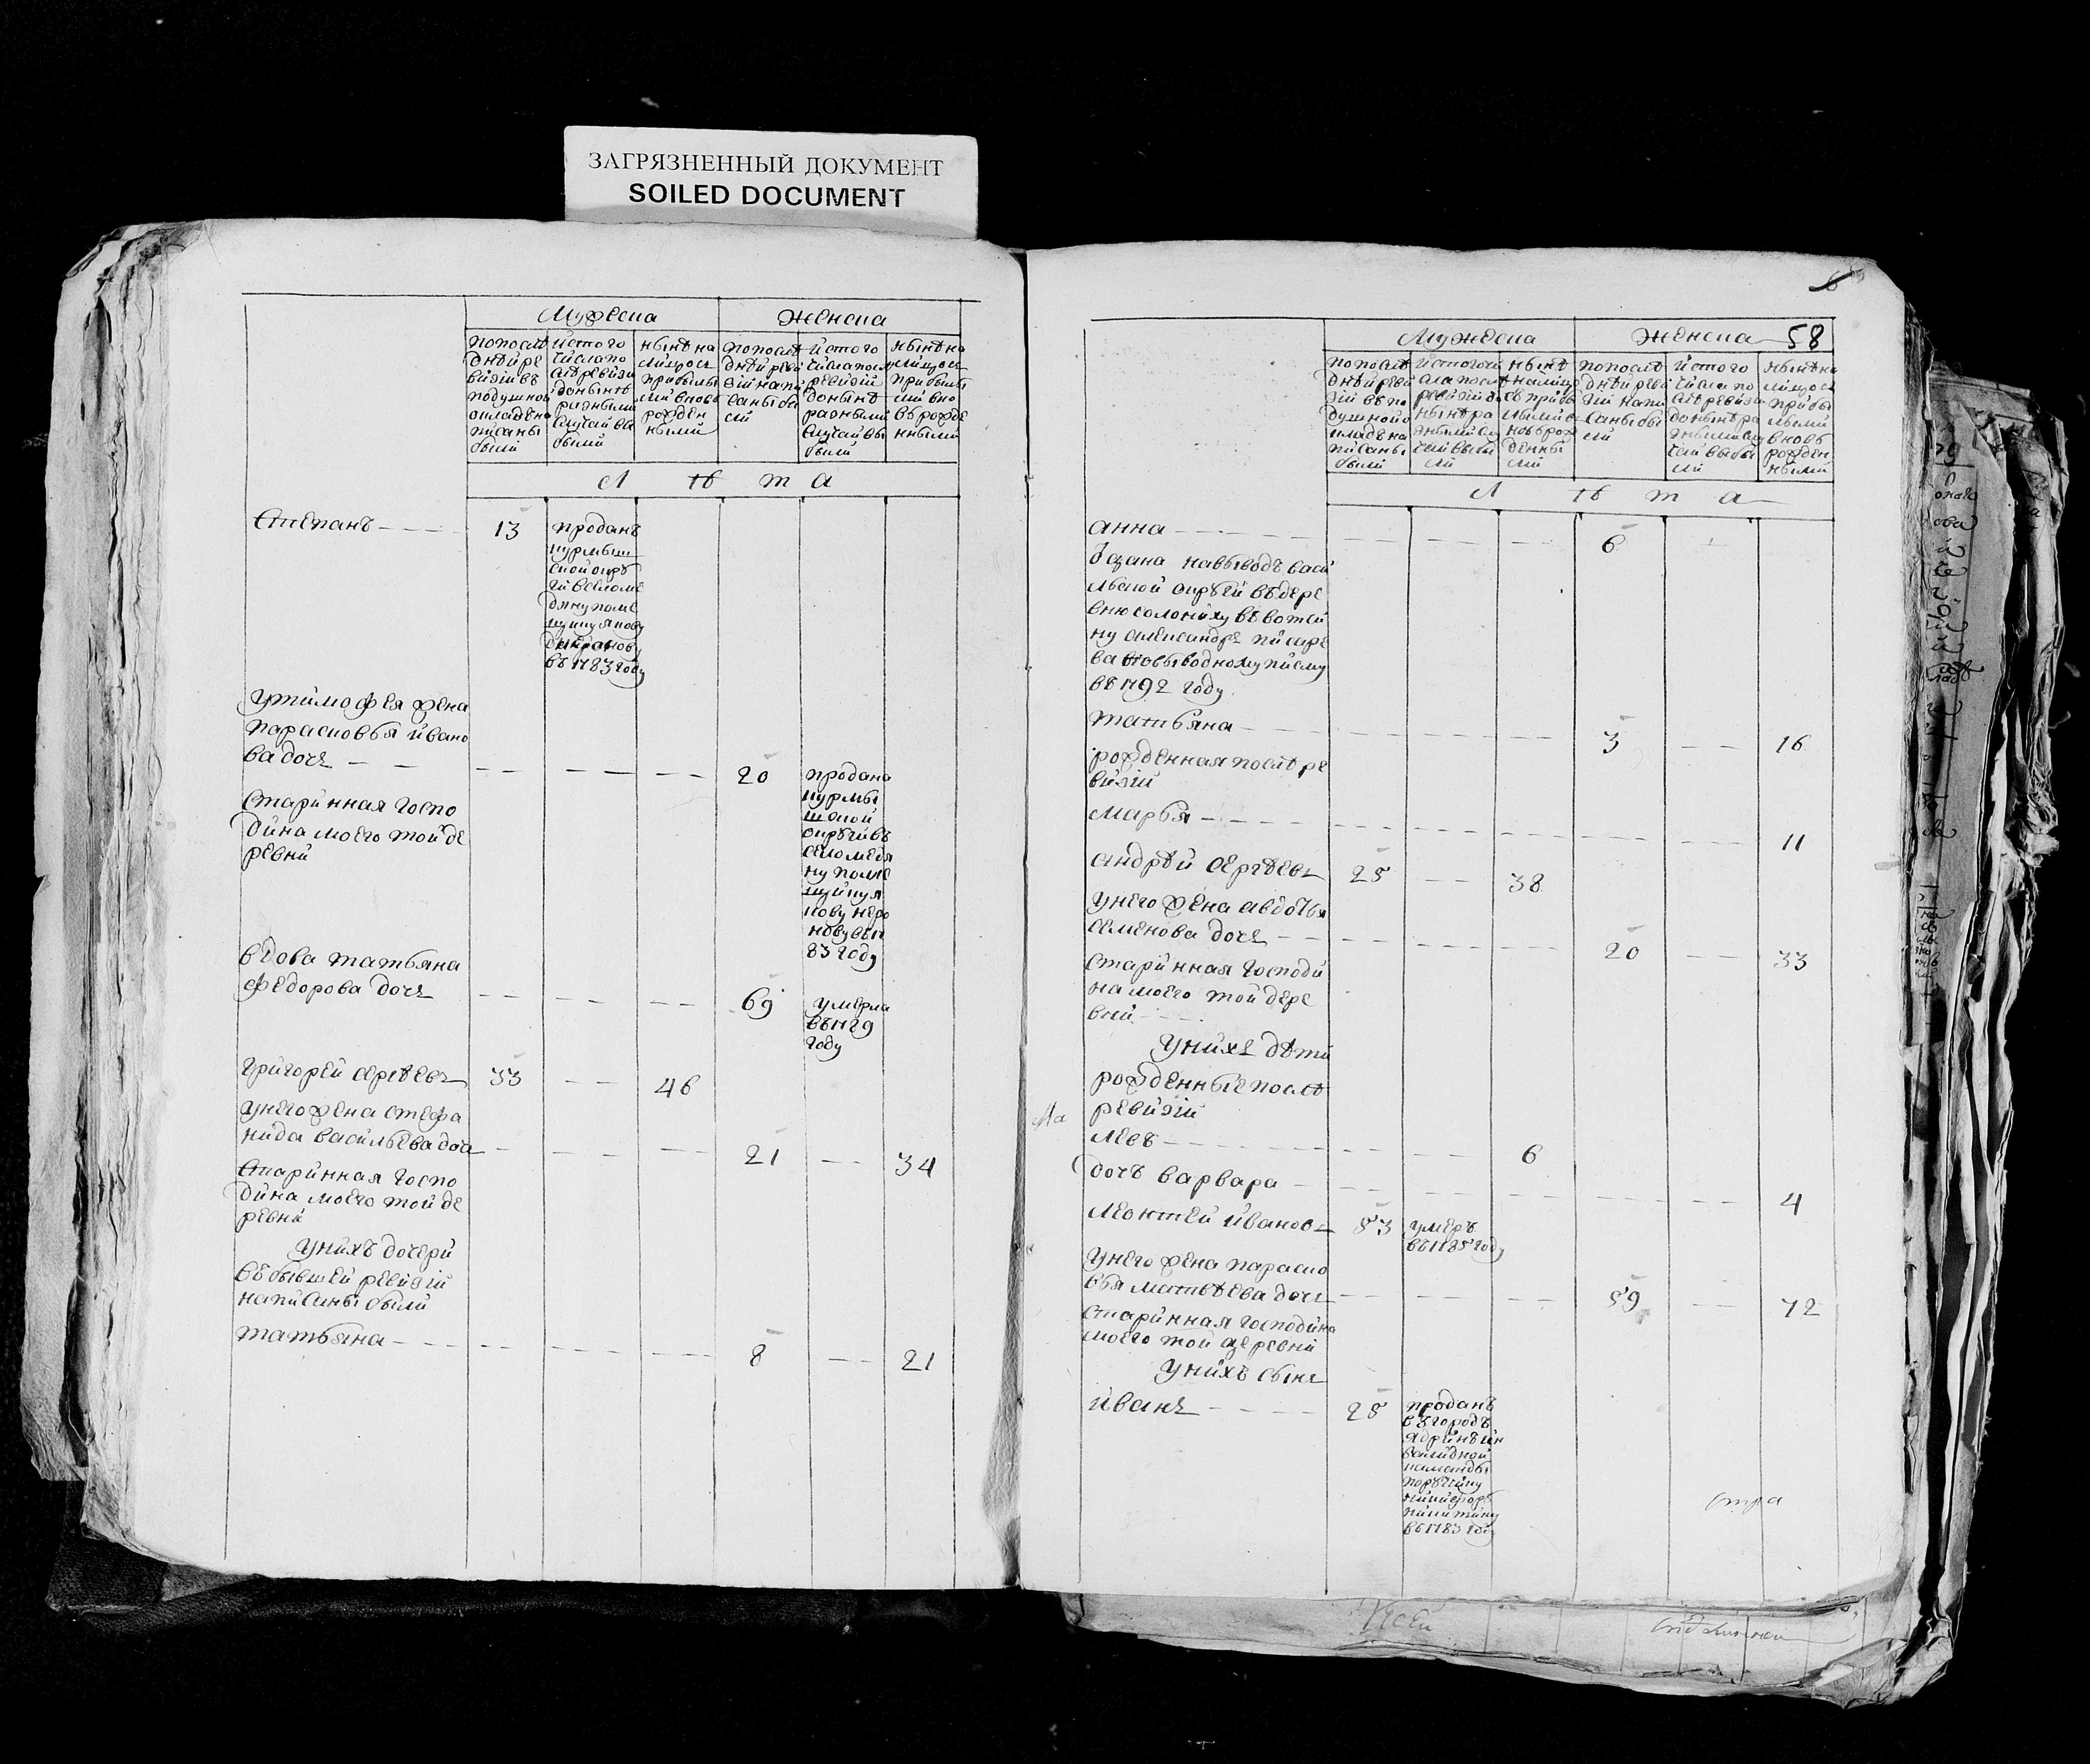 ЗАГРЯЗНЕННЫЙ ДОКУМЕНТ
SOILED DOCUMENT
Мужеска
Женска
попослѣ
дней ре
визіи въ
подушной
окладъ на
писаны
были
истого
числа по
слѣ ревизи
донынѣ
разными
случаи вы
были
нынѣ на
лицо съ
прибылы
ми вновь
рожден
ными
попослѣ
дней реви
зіи напи
саны бы
ли
истого
числа посл
ревизіи
донынѣ
разными
случаи вы
были
нынѣ на
лицо съ
прибылы
ми вно
въ рожде
нными
Л ѣ т а
степанъ
13
проданъ
курмыш
ской окру
ги въ село ме
дяну поме
щику
въ 1783 году
у тимофея жена
парасковья ивано
ва дочь
20
продана
курмы
шской
округи въ
село медя
ну поме
щику
нову въ 17
83 году
старинная госпо
дина моего той де
ревни
вдова татьяна
федорова дочь
69
умерла
въ 1729
году
григорей сергѣевъ
33
46
у него жена стефа
нида васильева доч
21
34
старинная госпо
дина моего той де
ревни
у нихъ дочери
въ бывшей ревизіи
написаны были
татьяна
8
21
58
Мужеска
Женска
попослѣ
дней реви
зіи въ по
душной о
кладъ на
писаны
были
истого чи
сла послѣ
ревизіи до
нынѣ ра
зными слу
чаи выбы
ли
нынѣ
на лицо
съ приб
лыми
новь рож
денны
ми
попослѣ
дней реви
зіи напи
саны бы
ли
истого
числа по
слѣ ревизи
донынѣ ра
зными слу
чаи выбы
ли
нынѣ на
лицо съ
прибы
лыми
вновь
рожден
ными
Л ѣ т а
анна
6
адана на выводъ васи
льской округи въ дере
вню солониху въ вотчи
ну александръ писаре
ва по выводному писму
въ 1792 году
татьяна
3
16
рожденная послѣ ре
визіи
марья
11
андрей сергѣевъ
25
38
у него жена авдотья
семенова дочь
20
33
старинная господи
на моего той дере
вни
у нихъ дѣти
рожденные послѣ
ревизіи
левъ
6
дочь варвара
4
леонтей ивановъ
53
умеръ
въ 1785 году
у него жена параско
вья матвѣева дочь
59
72
старинная господина
моего той деревни
у нихъ сынъ
иванъ
25
проданъ
въ городъ
ядринъ ин
валидной
команды
порутчику
никифору
никитину
въ 1783 году
стра